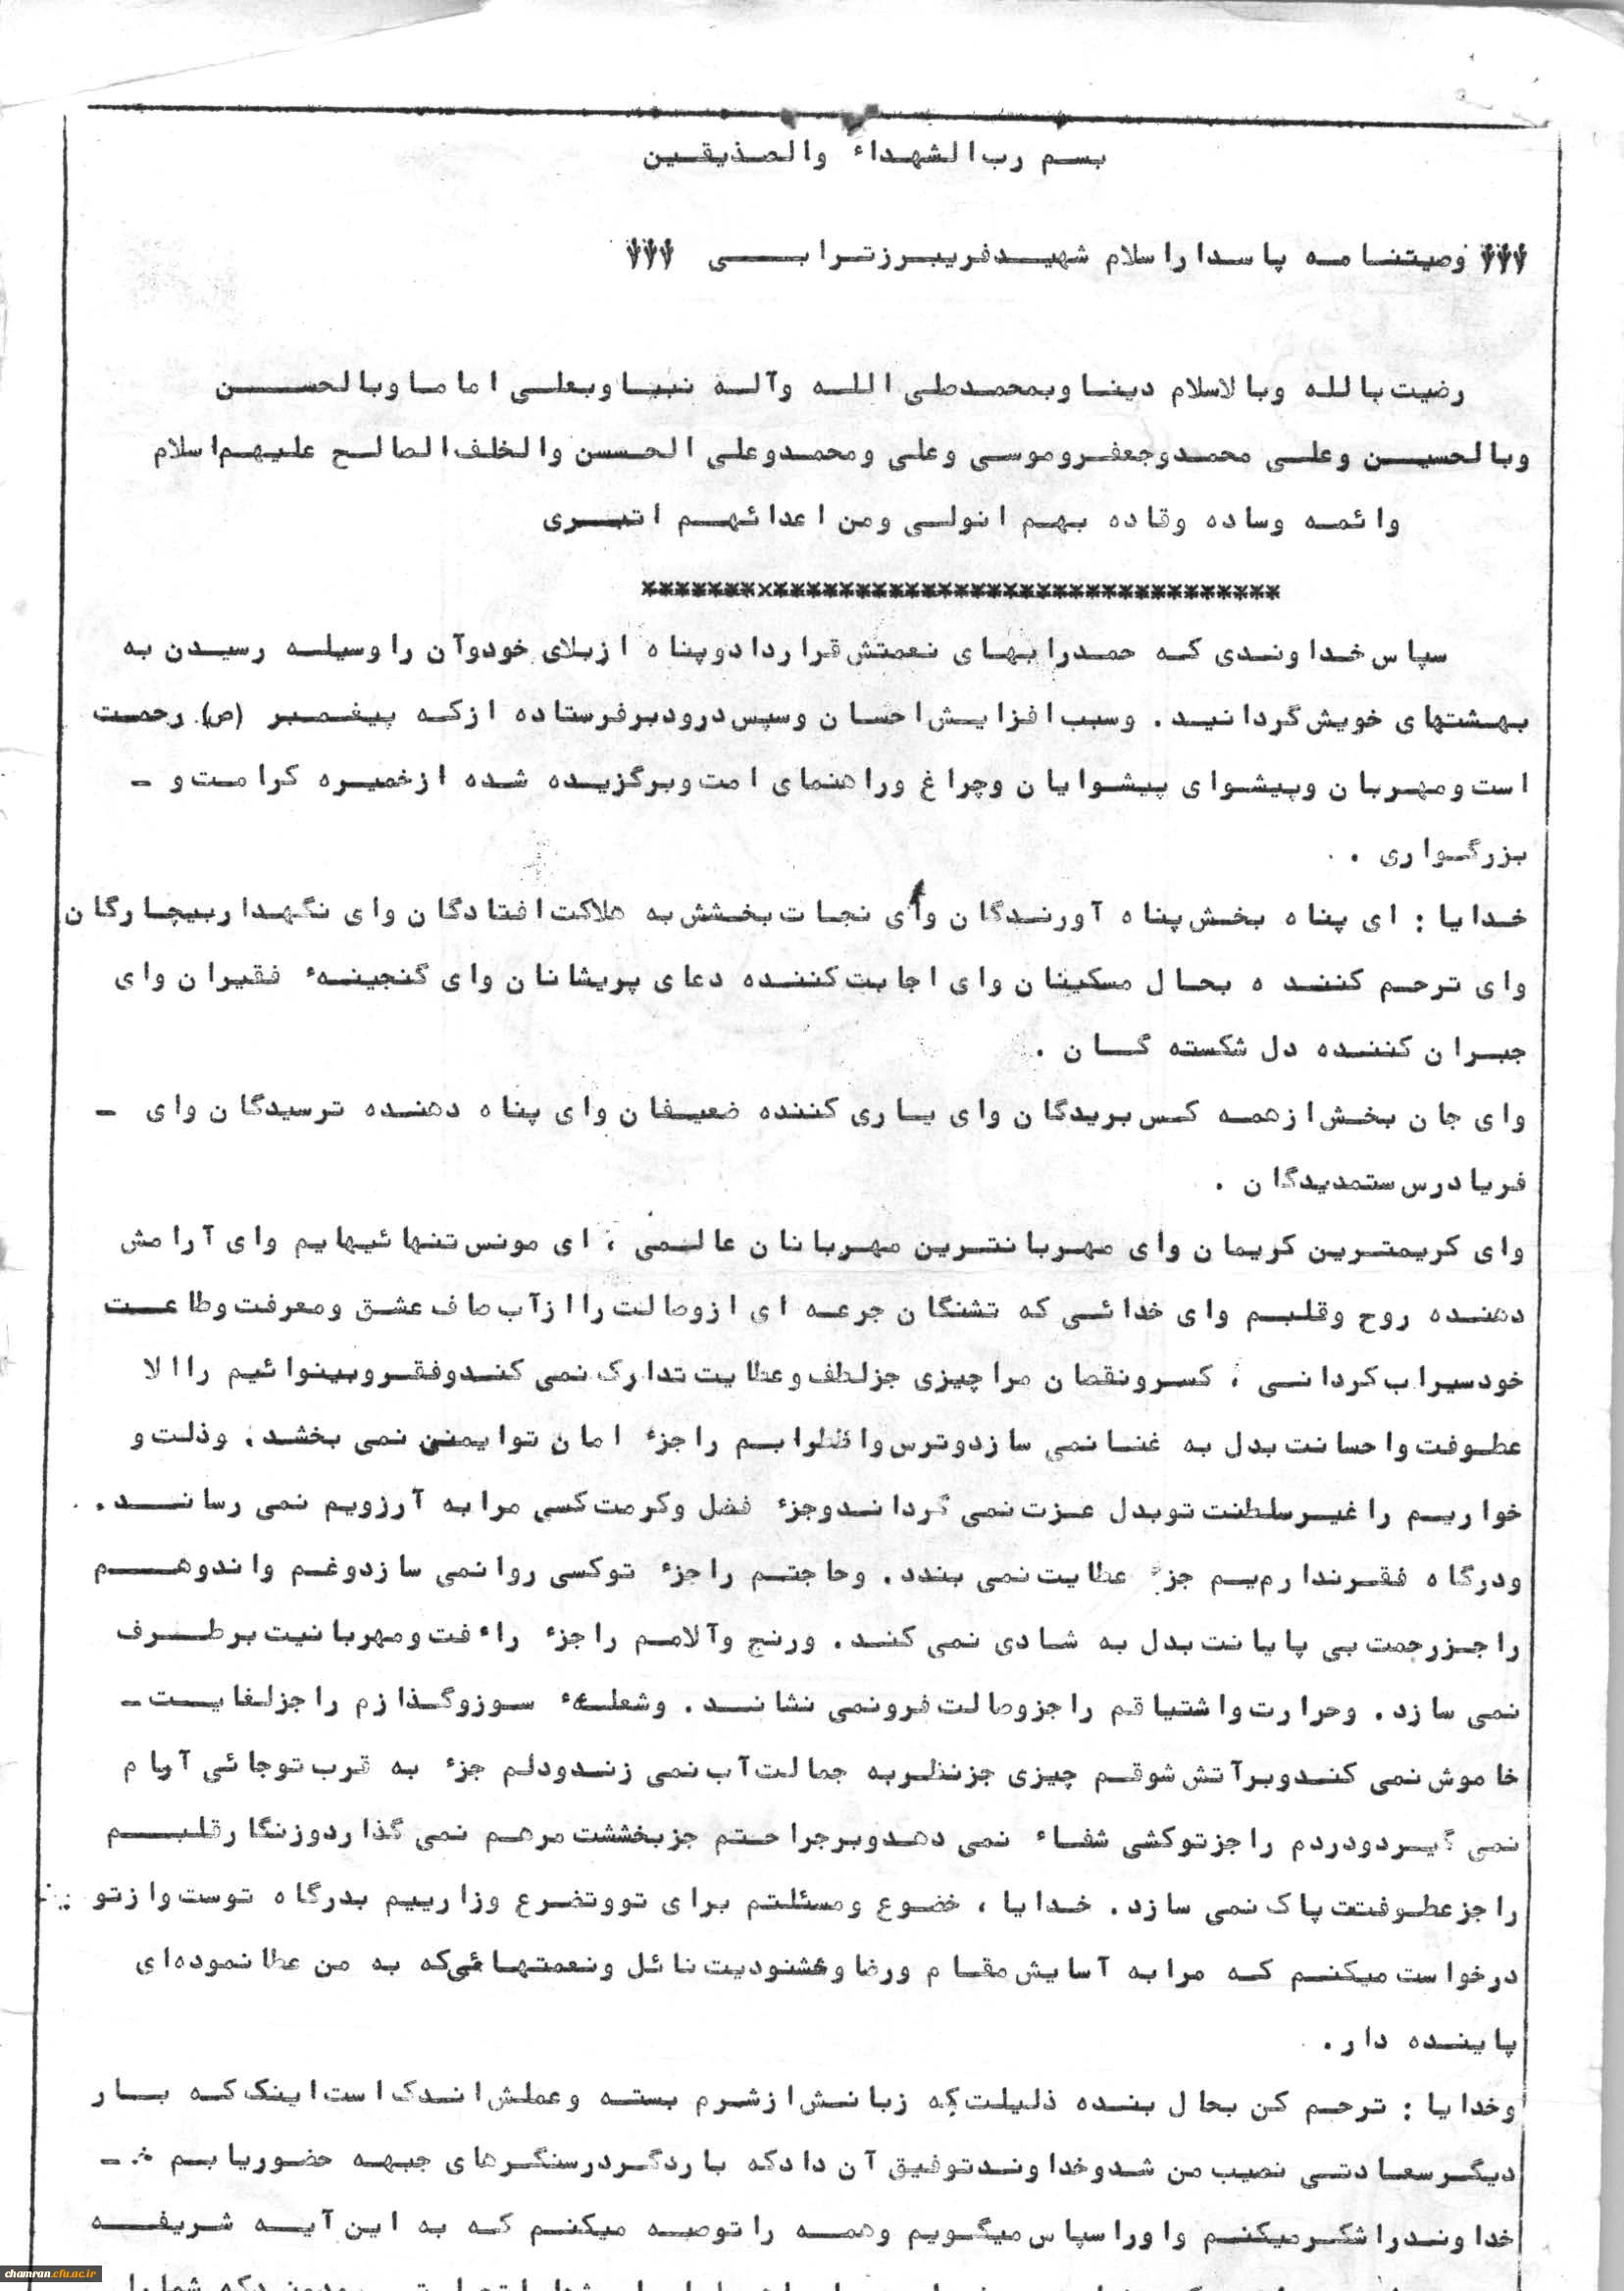 بسم رب الشهداء والصدیقین
وصیتنامه پاسدار اسلام شهید فریبرز ترابی
رضیت بالله وبالاسلام دینا وبمحمد صلی الله وآله نبیا وبعلی اماما وبالحسن
وبالحسین وعلی محمد وجعفر وموسی وعلی ومحمد وعلی الحسسن والخلف الصالح علیهم اسلام
وائمه وساده وقاده بهم اتولی ومن اعدائهم اتبری
***************************************
سپاس خداوندی که حمد را بهای نعمتش قرارداد وپناه ازبلای خود وآن را وسیله رسیدن به
بهشتهای خویش گردانید . وسبب افزایش احسان وسپس درود برفرستاده ازکه پیغمبر (ص) رحمت
است ومهربان وپیشوای پیشوایان وچراغ وراهنمای امت وبرگزیده شده ازخمیره کرامت و -
بزرگواری .
خدایا : ای پناه بخش پناه آورندگان وای نجات بخشش به هلاکت افتادگان وای نگهدار بیچارگان
وای ترحم کننده بحال مسکینان وای اجابت کننده دعای پریشانان وای گنجینهء فقیران وای
جبران کننده دل شکسته گان .
وای جان بخش ازهمه کس بریدگان وای یاری کننده ضعیفان وای پناه دهنده ترسیدگان وای -
فریادرس ستمدیدگان .
وای کریمترین کریمان وای مهربانترین مهربانان عالمی ، ای مونس تنهائیهایم وای آرامش
دهنده روح وقلبم وای خدائی که تشنگان جرعه ای ازوصالت را ازآب صاف عشق ومعرفت وطاعت
خود سیراب کردانی ، کسرونقصان مرا چیزی جزلطف وعطایت تدارک نمی کند وفقروبینوائیم را الا
عطوفت واحسانت بدل به غنا نمی سازد وترس واظطرابم را جزء امان توایمنن نمی بخشد . وذلت و
خواریم را غیرسلطنت توبدل عزت نمی گرداند وجزء فضل وکرمت کسی مرا به آرزویم نمی رساند .
ودرگاه فقرندارم‌یم جزء عطایت نمی بندد . وحاجتم را جزء توکسی روا نمی سازد وغم واندوهم
را جزرحمت بی پایانت بدل به شادی نمی کند . ورنج وآلامم را جزء راءفت ومهربانیت برطرف
نمی سازد . وحرارت واشتیاقم را جزوصالت فرونمی نشاند . وشعلهء سوزوگذازم را جزلغایت -
خاموش نمی کند وبرآتش شوقم چیزی جزنظربه جمالت آب نمی زند ودلم جزء به قرب توجائی آرام
نمی گیرد ودردم را جزتوکشی شفاء نمی دهد وبرجراحتم جزبخششت مرهم نمی گذارد وزنگارقلبم
را جزعطوفتت پاک نمی سازد . خدایا ، خضوع ومسئلتم برای تووتضرع وزارییم بدرگاه توست وازتو
درخواست میکنم که مرا به آسایش مقام ورضا وخشنودیت نائل ونعمتهائی‌که به من عطا نموده‌ای
پاینده دار .
وخدایا : ترحم کن بحال بنده ذلیلت که زبانش ازشرم بسته وعملش اندک است اینک که بار
دیگرسعادتی نصیب من شد وخداوند توفیق آن داد که باردگردرسنگرهای جبهه حضوریابم -
خداوند را شکرمیکنم واورا سپاس میگویم وهمه را توصه میکنم که به این آیه شریفه
chamran.cfu.ac.ir